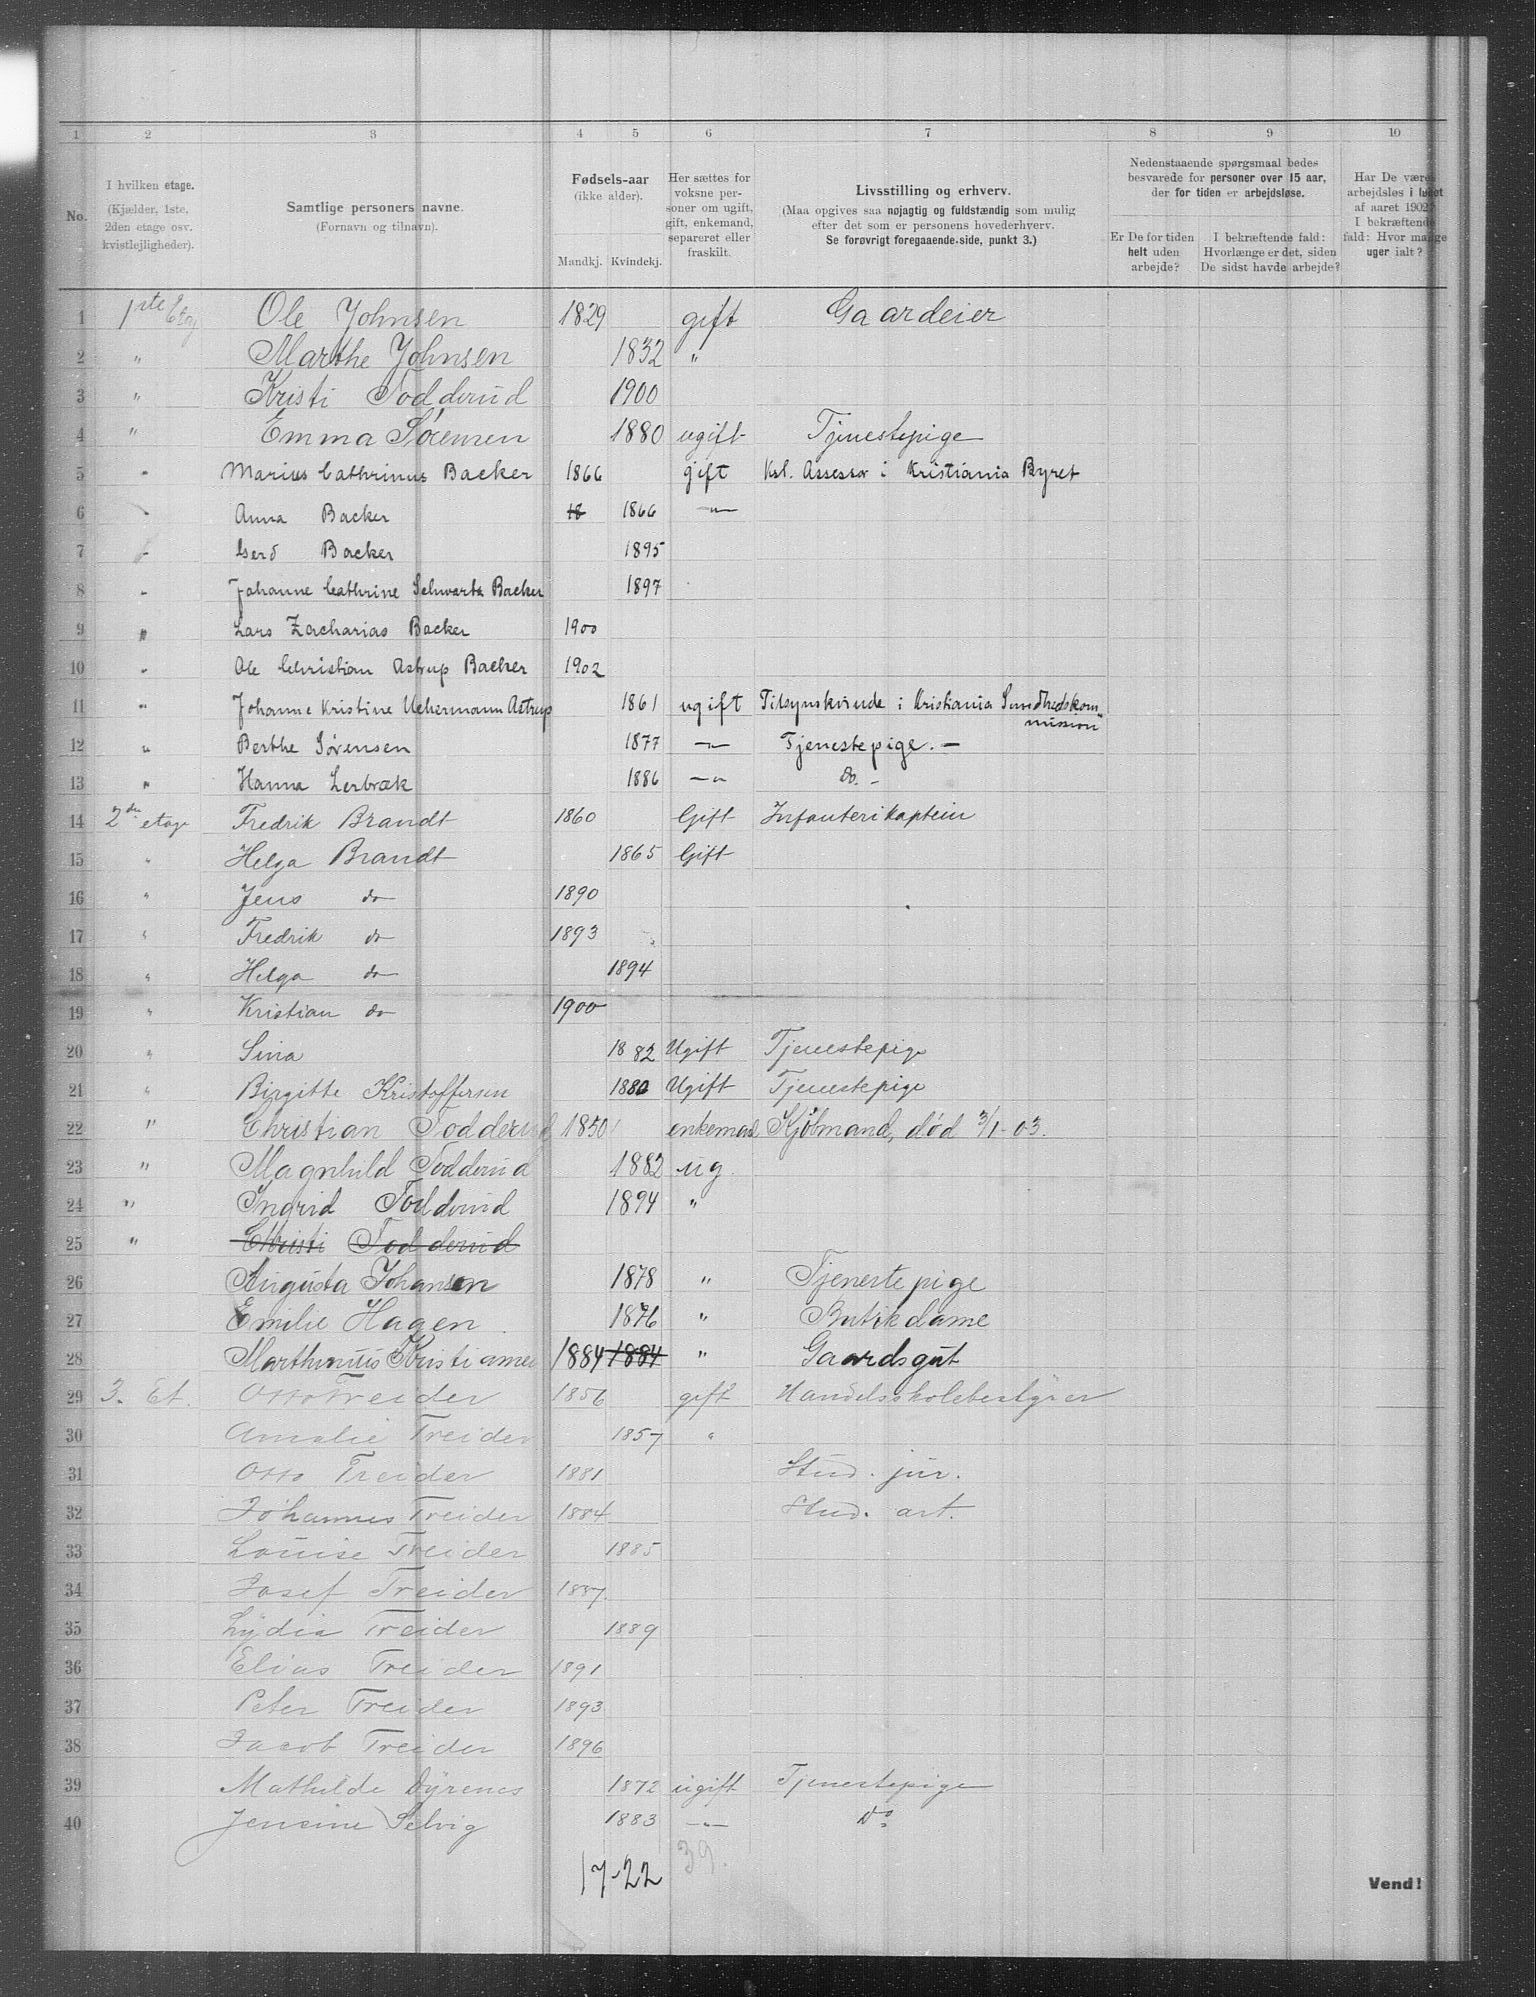 1 2 3 4 5 6 7 8 9 10
No. I hvilken etage. (Kjælder, 1ste, 2den etage osv. kvistlejligheder). Samtlige personers navne. (Fornavn og tilnavn). Fødsels-aar (ikke alder). Mandkj. Kvindekj. Her sættes for voksne personer om ugift, gift, enkemand, separeret eller fraskilt. Livsstilling og erhverv. (Maa opgives saa nøjagtig og fuldstændig som mulig efter det som er personens hovederhverv. Se forøvrigt foregaaende side, punkt 3.) Nedenstaaende spørgsmaal bedes besvarede for personer over 15 aar, der for tiden er arbejdsløse. Er De for tiden helt uden arbejde? I bekræftende fald: Hvorlænge er det, siden De sidst havde arbejde? Har De været arbejdsløs i løbet af aaret 1902? I bekræftende fald: Hvor mange uger ialt?
1 1ste Etg Ole Johnsen 1829 gift Gaardeier
2 " Marthe Johnsen 1832 "
3 " Kristi Todderud 1900
4 " Emma Sørensen 1880 ugift Tjenestepige
5 " Marius Cathrinus Backer 1866 gift Kst. Assessor i Kristiania Byret
6 " Anna Backer 18 1866 —"—
7 " Gerd Backer 1895
8 " Johanne Cathrine Schwartz Backer 1897
9 " Lars Zacharias Backer 1900
10 " Ole Christian Astrup Backer 1902
11 " Johanne Kristine Uchermann Astrup 1861 ugift Tilsynskvinde i Kristiania Sundhedskommission
12 " Berthe Sørensen 1877 —"— Tjenestepige. —
13 " Hanna Lerbræk 1886 —"— Do. —
14 2den etage Fredrik Brandt 1860 Gift Infanterikaptein
15 " Helga Brandt 1865 Gift
16 " Jens do 1890
17 " Fredrik do 1893
18 " Helga do 1894
19 " Kristian do 1900
20 " Sina 1882 Ugift Tjenestepige
21 " Birgitte Kristoffersen 1880 Ugift Tjenestepige
22 " Christian Todderud 1850 enkemand Kjøbmand, død 3/1-03.
23 " Magnhild Todderud 1882 ug.
24 " Ingrid Todderud 1894 "
25 " Christi Todderud
26 Augusta Johansen 1878 " Tjenestepige
27 Emilie Hagen 1876 " Butikdame
28 Marthinius Kristiansen 1884 1884 " Gaardsgut
29 3. Et. Otto Treider 1856 gift Handelsskolebestyrer
30 Amalie Treider 1857 "
31 Otto Treider 1881 Stud. jur.
32 Johannes Treider 1884 Stud. art.
33 Louise Treider 1885
34 Josef Treider 1887.
35 Lydia Treider 1889
36 Elias Treider 1891
37 Peter Treider 1893
38 Jacob Treider 1896
39 Mathilde Dyrenes 1872 ugift Tjenestepige
40 Jensine Selvig 1883 —"— Do
17-22 39.
Vend!